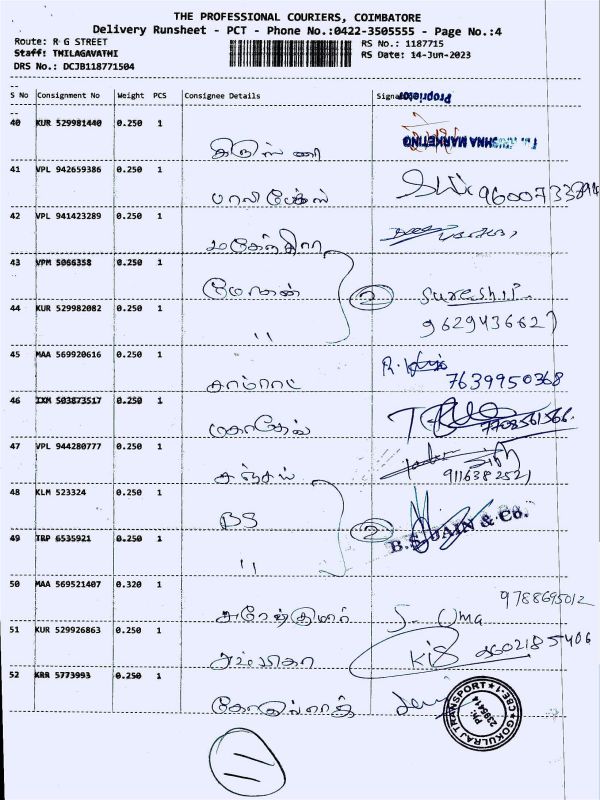 THE PROFESSIONAL COURIERS, COIMBATORE
Delivery Runsheet - PCT - Phone No.:0422-3505555 - Page No.:4
Route: R G STREET
RS No.: 1187715
Staff: THILAGAVATHI
RS Date: 14-Jun-2023
DRS No.: DCJB118771504
S No Consignment No Weight PCS Consignee Details
Proprietor
40 KUR 529981440 0.250 1
MARKETING
41 VPL 942659386 0.250 1
42 VPL 941423289 0.250 1
மகேந்திரா
43 VPM 5066358 0.250 1
மோகன்
2 Suresh.P.
44 KUR 529982082 0.250 1
"
45 MAA 569920616 0.250 1
சாம்ராட்
7639950368
46 IXM 503873517 0.250 1
மகாதேவ்
7708561566
47 VPL 944280777 0.250 1
சஞ்சய்
9116382521
48 KLM 523324 0.250 1
BS
2 B.S. JAIN & Co.
49 TRP 6535921 0.250 1
"
50 MAA 569521407 0.320 1
9788695012
சுரேஷ்குமார்
S. Uma
51 KUR 529926863 0.250 1
அம்பிகா
52 KRR 5773993 0.250 1
GOKULRAJ TRANSPORT CBE-1
PH: 2395414